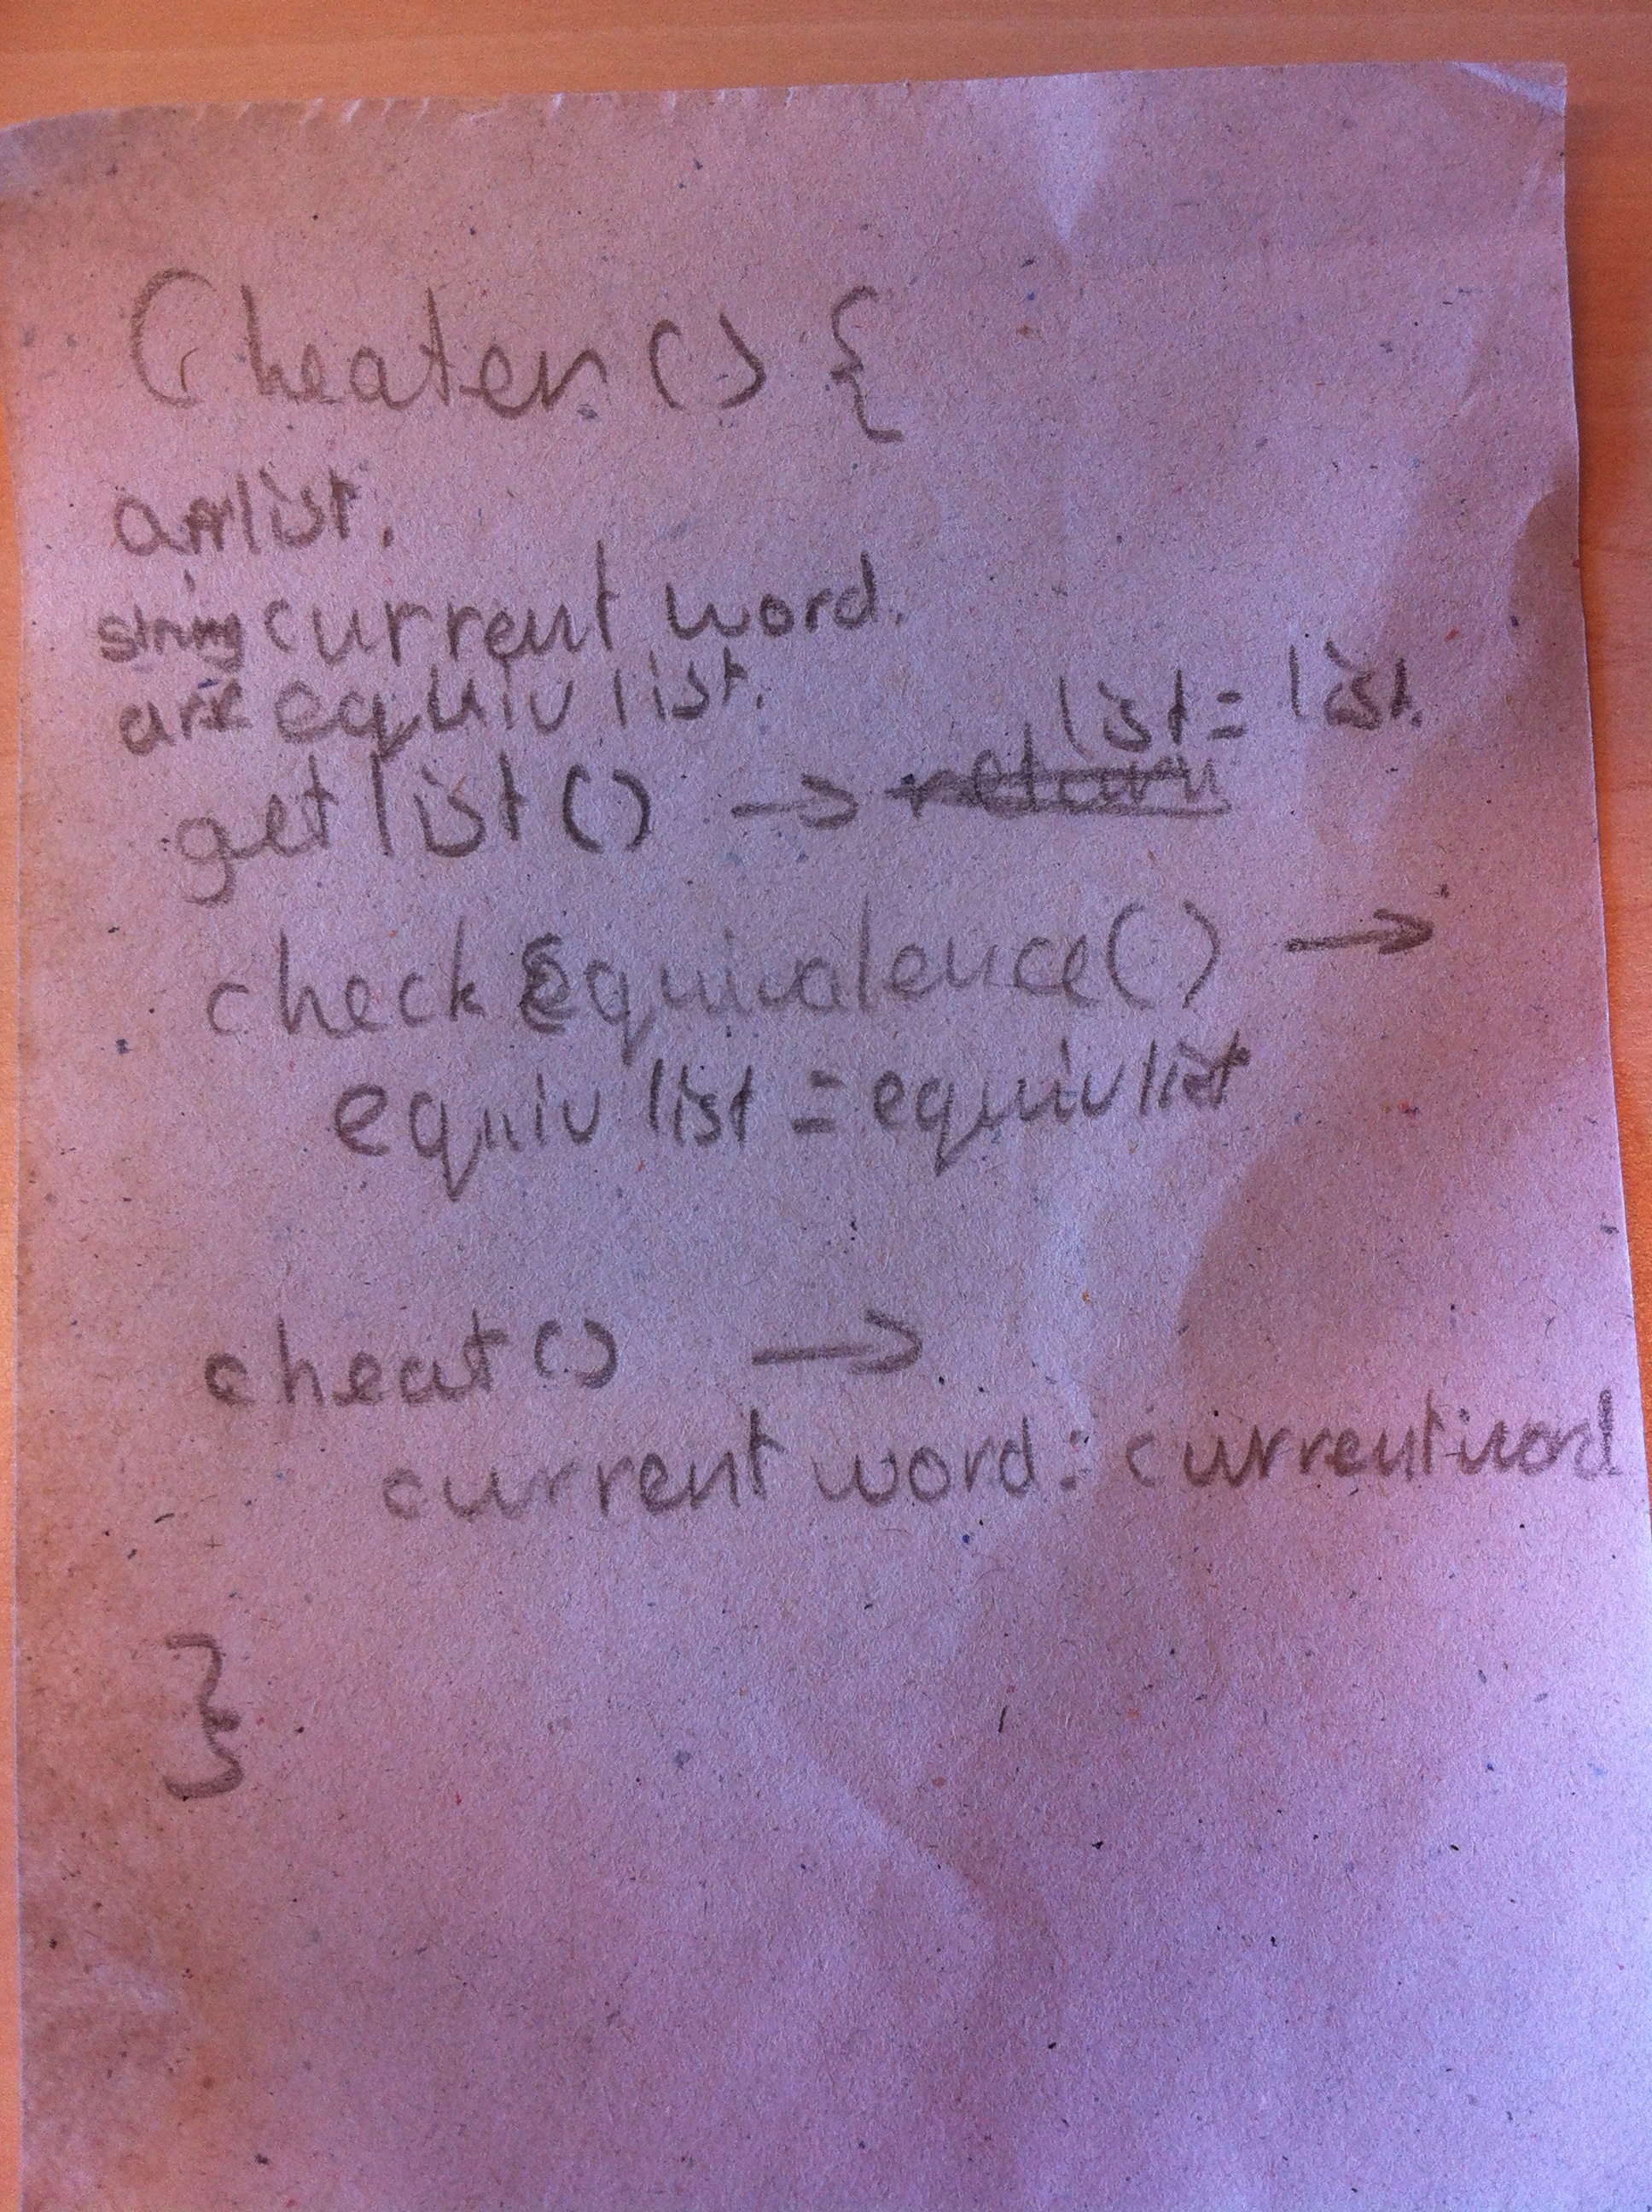 Cheater () {
arrlist.
string current word.
arr equiv list.
get list () → return list = list.
check Equivalence () →
equiv list = equiv list
cheat () →
current word = current word
}